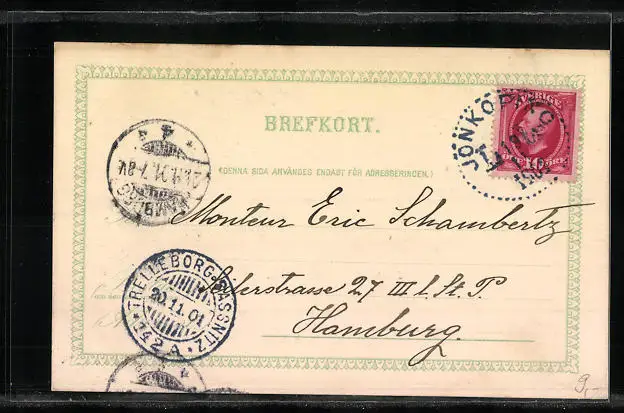 BREFKORT.
(DENNA SIDA ANVÄNDES ENDAST FÖR ADRESSERINGEN.)
SVERIGE
10
JÖNKÖPING
1901
Monteur Eric Schambertz
27 III l. St. P.
Hamburg.
HAMBURG
TRELLEBORG-SASSNITZ
20.11.01
342 A
9,-